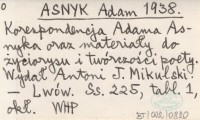 0
ASNYK Adam 1938.
Korespondencja Adama As-
nyka oraz materiały do
życiorysu i twórczości poety.
Wydał Antoni J. Mikulski.
— Lwów. Ss. 225, tabl. 1,
okł. WHP